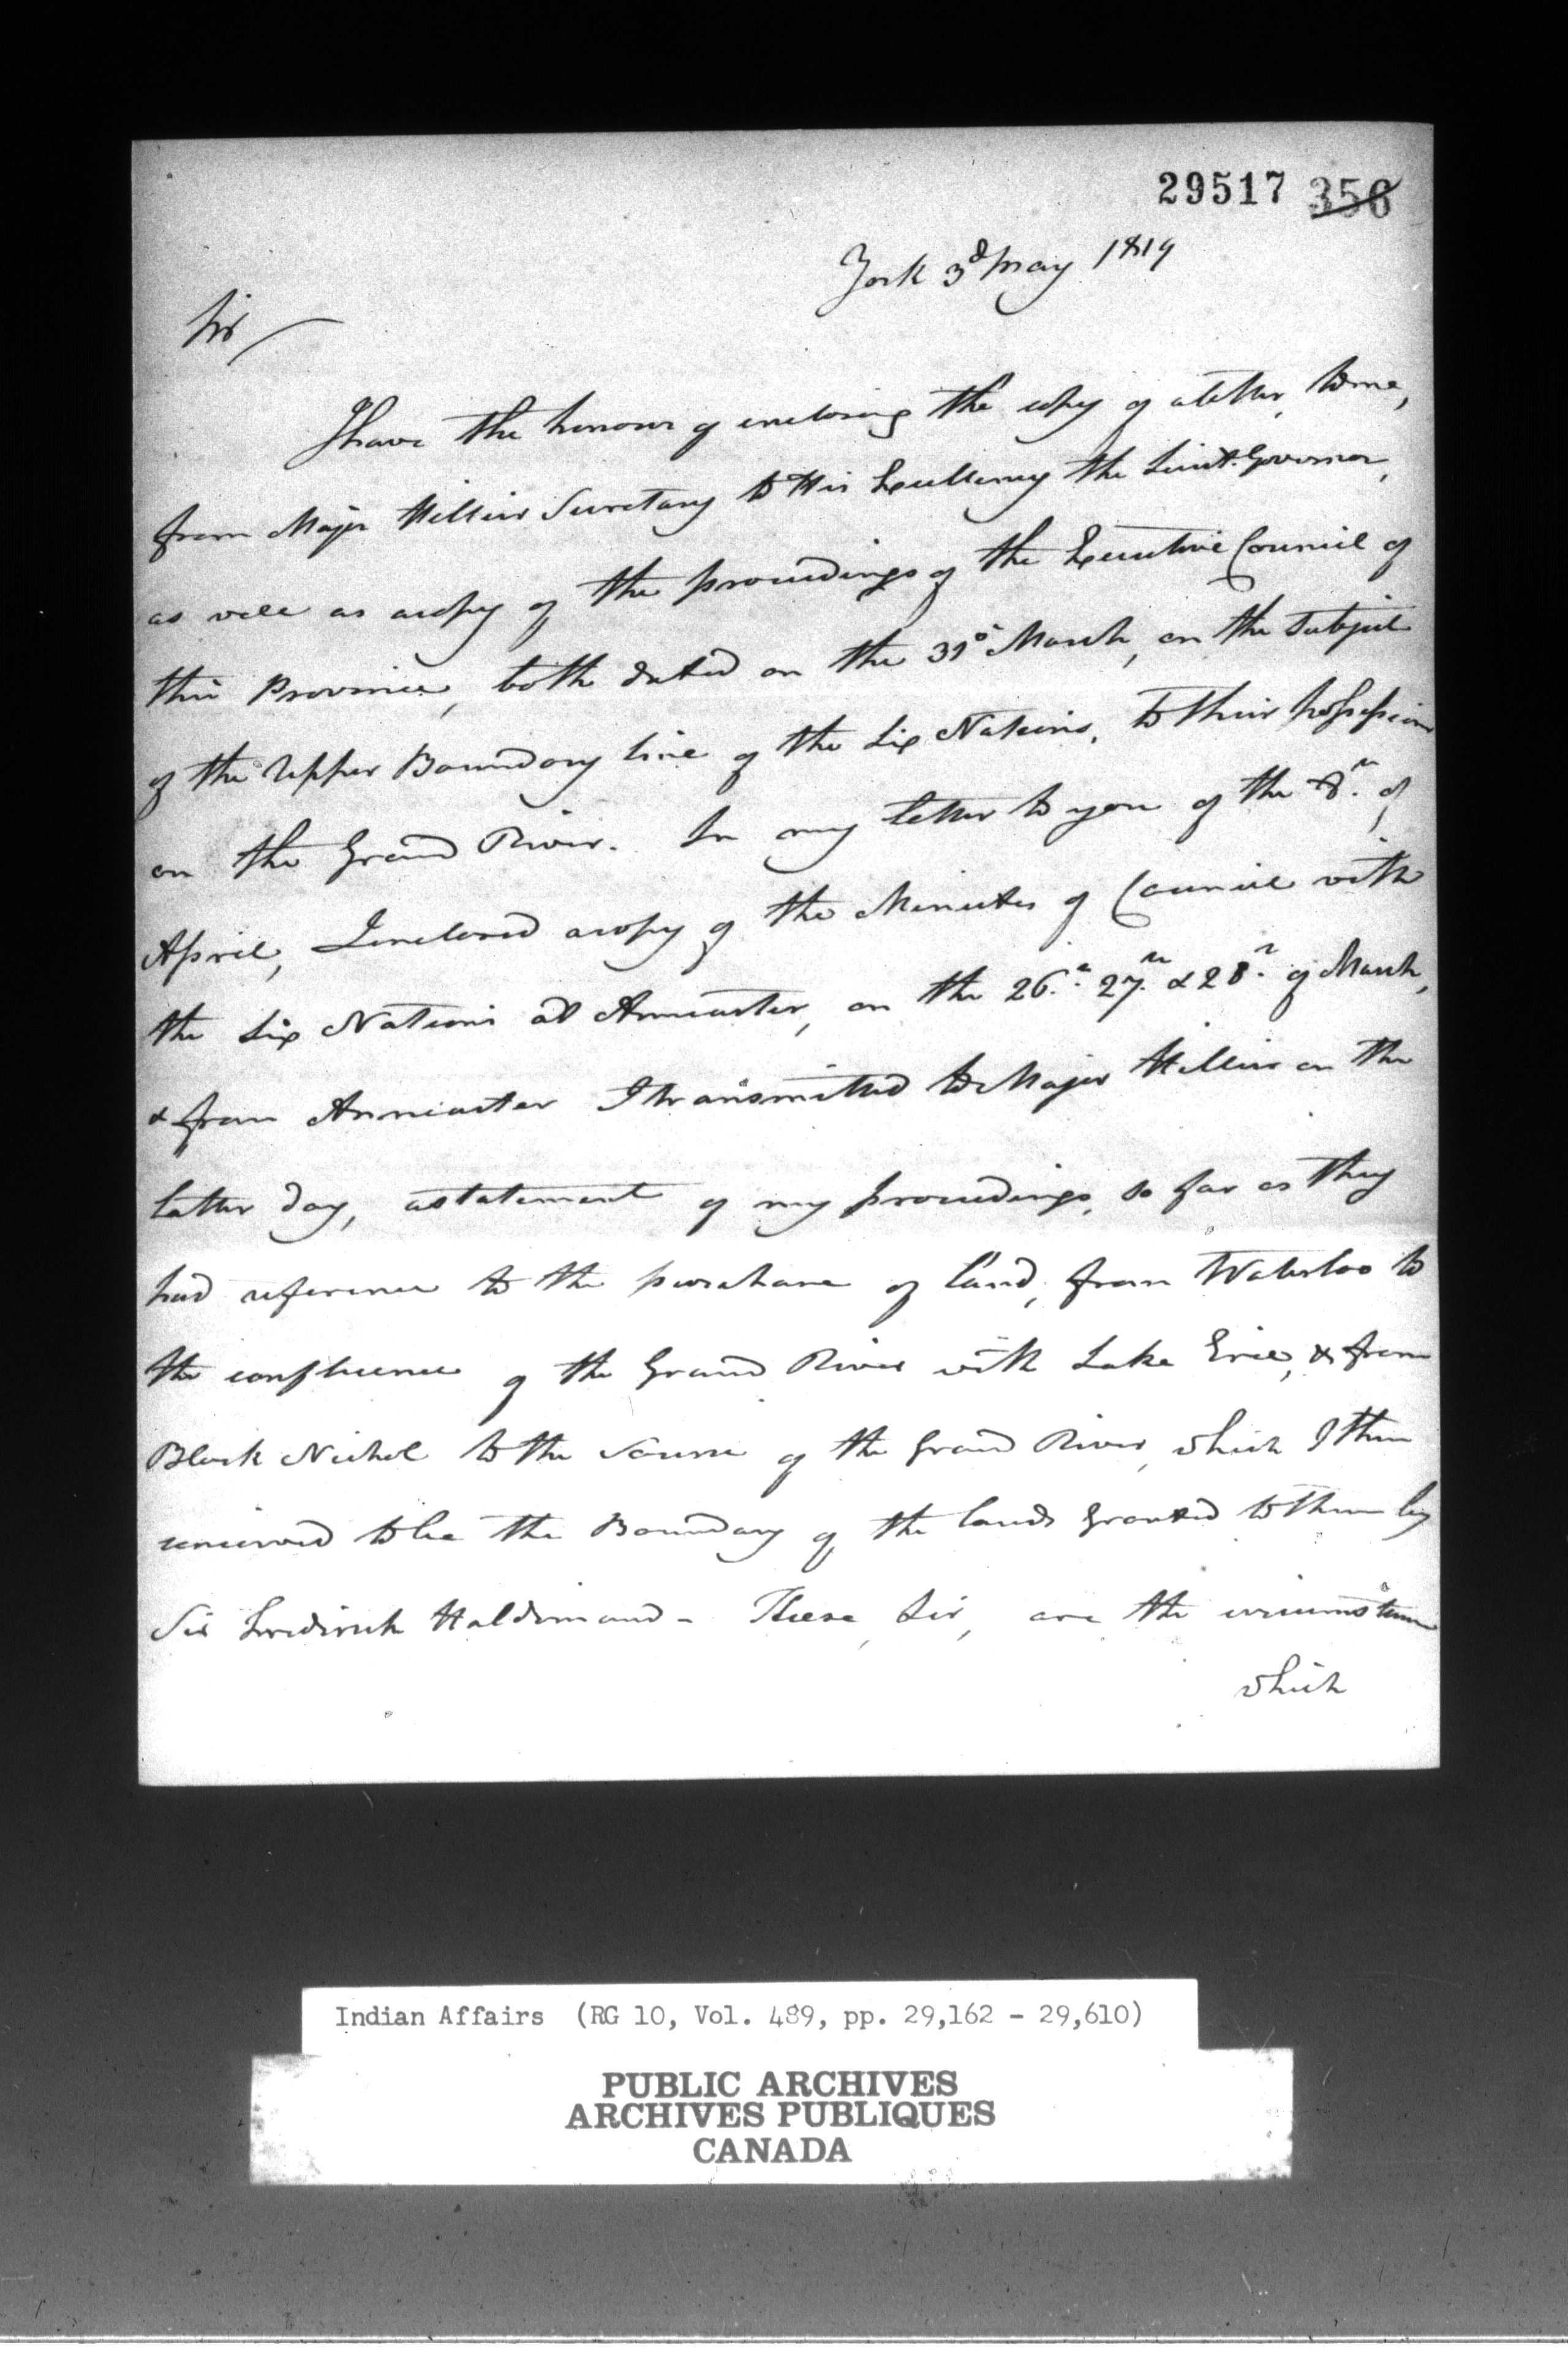 29517 356
York 3d May 1819
Sir
I have the honour of enclosing the copy of a letter, to me,
from Major Hillier Secretary to His Excellency the Lieut. Governor,
as well as a copy of the proceedings of the Executive Council of
this Province, both dated on the 31st March, on the subject
of the Upper Boundary line of the Six Nations, to their possessions
on the Grand River. In my letter to you of the 8th. of
April, I enclosed a copy of the Minutes of Council with
the Six Nations at Ancaster, on the 26th. 27th. & 28th. of March,
& from Ancaster I transmitted to Major Hillier on the
latter day, a statement of my proceedings, so far as they
had reference to the purchase of land, from Waterloo to
the confluence of the Grand River with Lake Erie, & from
Block Nichol to the Source of the Grand River, which I then
conceived to be the Boundary of the lands granted to them by
Sir Frederick Haldimand - These, Sir, are the circumstances
which
Indian Affairs (RG 10, Vol. 489, pp. 29,162 - 29,610)
PUBLIC ARCHIVES
ARCHIVES PUBLIQUES
CANADA